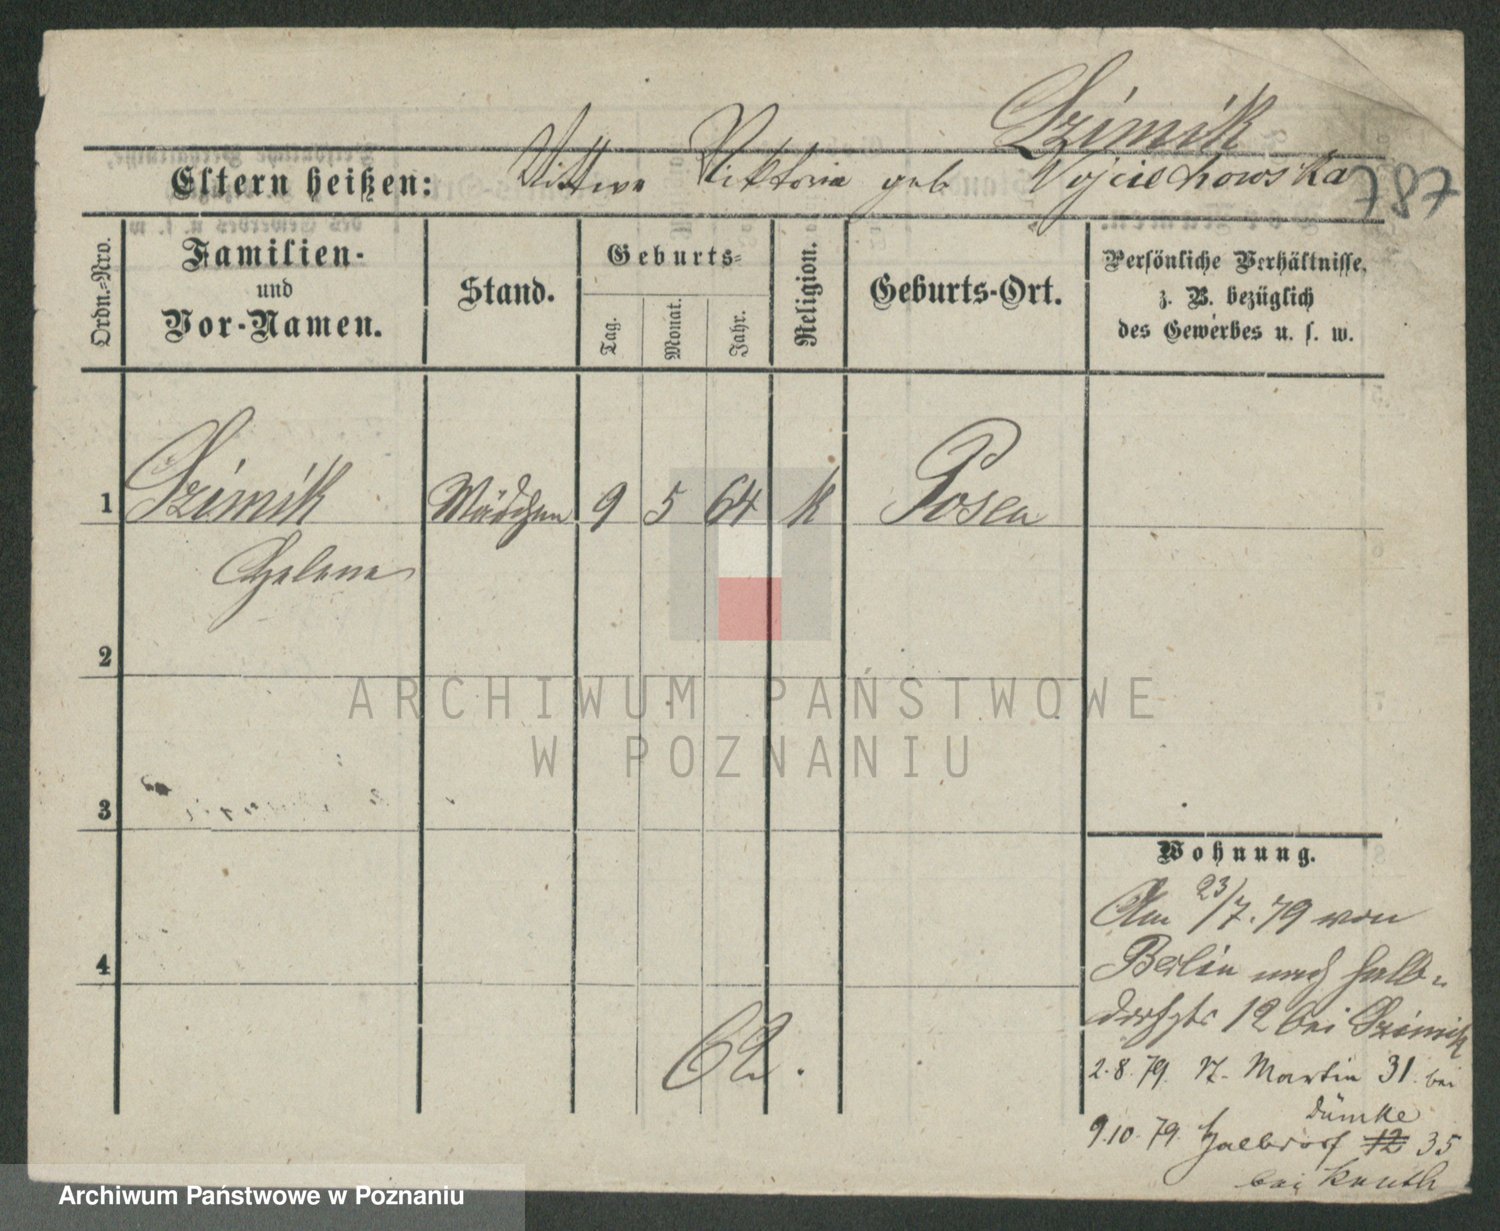 Dzimik
Eltern heißen: Wittwe Viktoria geb Wojciechowska
787
Ordn.-Nro.
Familien-
und
Vor-Namen.
Stand.
Geburts-
Tag.
Monat.
Jahr.
Religion.
Geburts-Ort.
Persönliche Verhältnisse,
z. B. bezüglich
des Gewerbes u. s. w.
1 Dzimik Mädchen 9 5 64 K Posen
Helene
2
3
4
Wohnung.
Am 23/7. 79 von
Berlin nach Halb-
dorfstr 12 bei Dzimik
2.8.79. St. Martin 31. bei
Dümke
9.10.79. Halbdorf 12 35
bei
ARCHIWUM PAŃSTWOWE
W POZNANIU
Archiwum Państwowe w Poznaniu